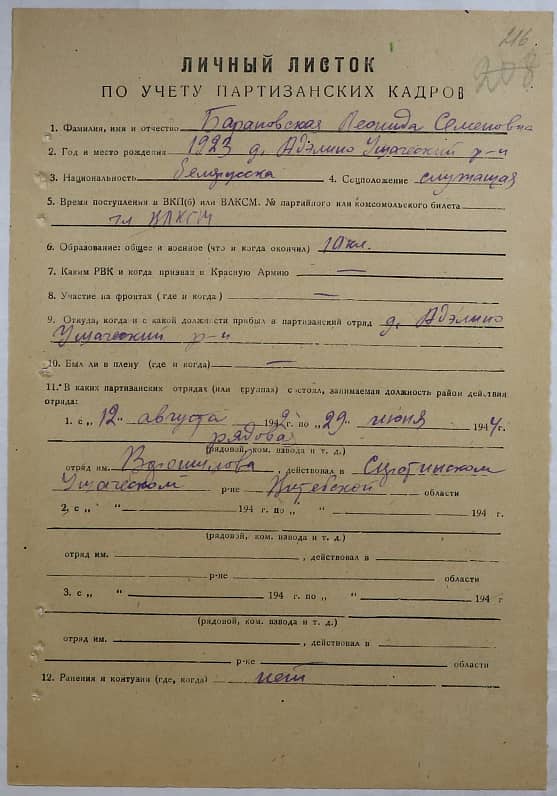 216.
208
ЛИЧНЫЙ ЛИСТОК
ПО УЧЕТУ ПАРТИЗАНСКИХ КАДРОВ
1. Фамилия, имя и отчество Барановская Леонида Семеновна
2. Год и место рождения 1923 д. Адэлино Ушачский р-н
3. Национальность белорусска 4. Соцположение служащая
5. Время поступления в ВКП(б) или ВЛКСМ. № партийного или комсомольского билета
чл ВЛКСМ
6. Образование: общее и военное (что и когда окончил) 10 кл.
7. Каким РВК и когда призван в Красную Армию —
8. Участие на фронтах (где и когда) —
9. Откуда, когда и с какой должности прибыл в партизанский отряд д. Адэлино
Ушачский р-н
10. Был ли в плену (где и когда) —
11. В каких партизанских отрядах (или группах) состоял, занимаемая должность район действия
отряда:
1. с „12" августа 1942 г. по „29" июня 1944 г.
рядовая
(рядовой, ком. взвода и т. д.)
отряд им. Ворошилова, действовал в Сиротинском
Ушачском р-не Витебской области
2. с „ " 194 г. по „ " 194 г.
(рядовой, ком. взвода и т. д.)
отряд им. , действовал в
р-не области
3. с „ " 194 г. по „ " 194 г
(рядовой, ком. взвода и т. д.)
отряд им. , действовал в
р-не области
12. Ранения и контузии (где, когда) нет